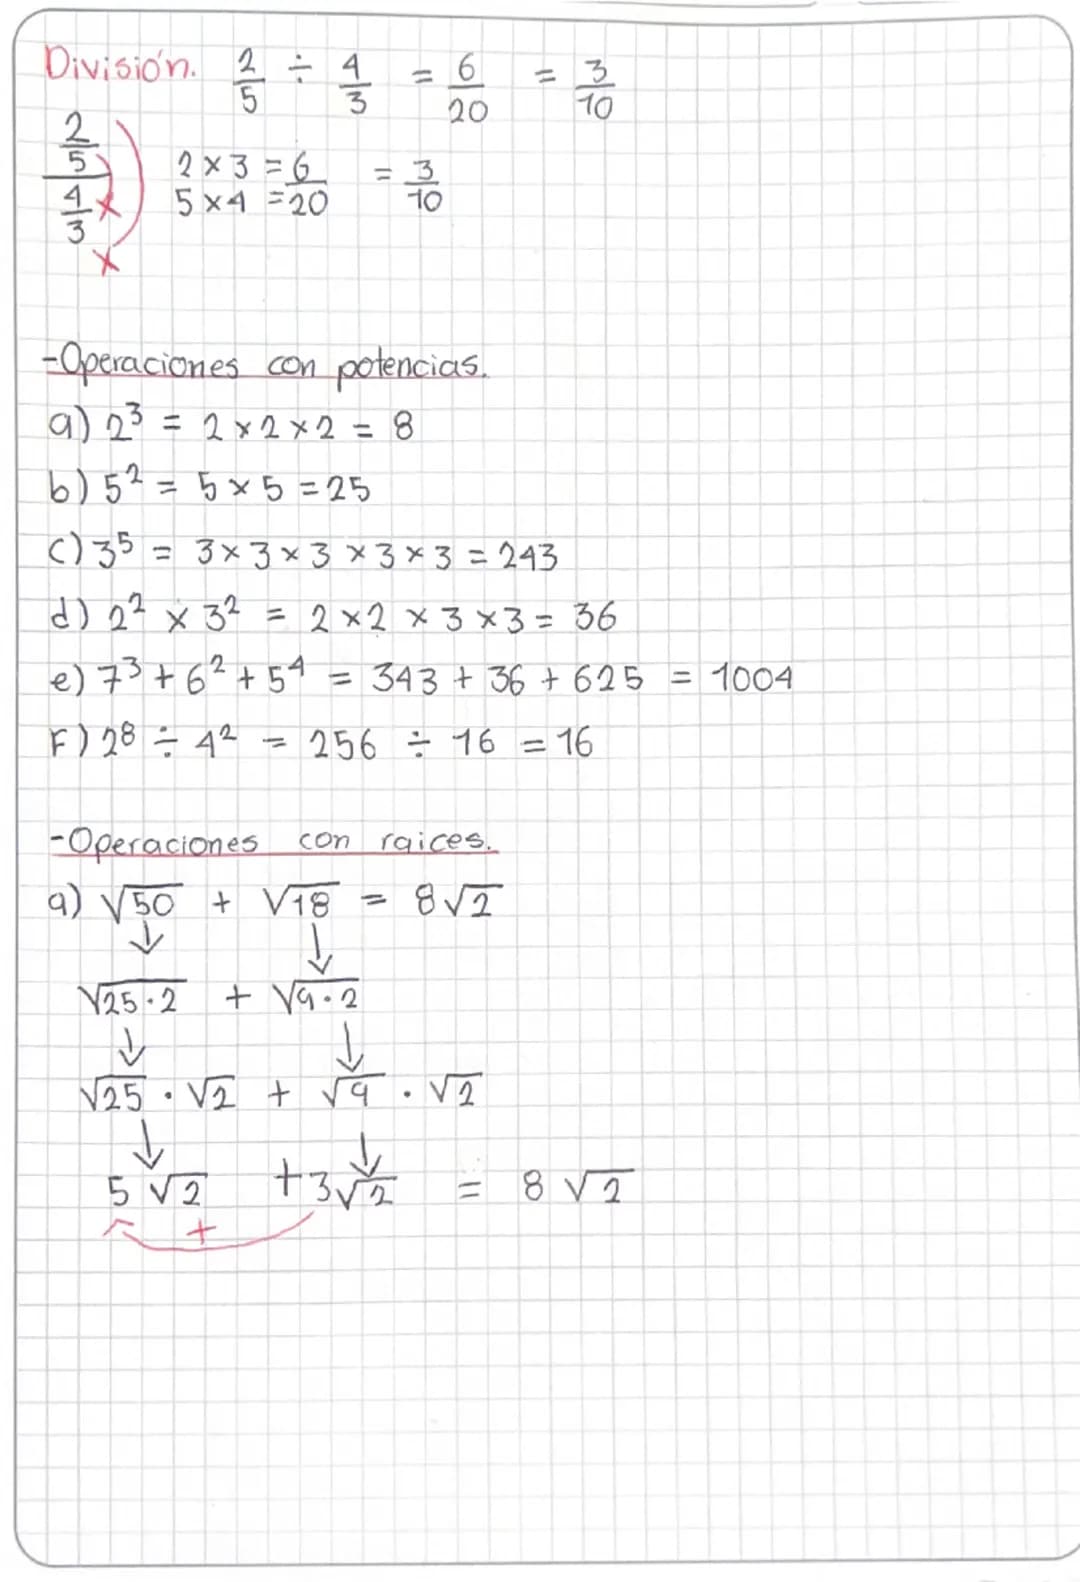 División. 2/5 ÷ 4/3 = 6/20 = 3/10
2/5 / 4/3 2 × 3 = 6 = 3/10
5 × 4 = 20
-Operaciones con potencias.
a) 2³ = 2 × 2 × 2 = 8
b) 5² = 5 × 5 = 25
c) 3⁵ = 3 × 3 × 3 × 3 × 3 = 243
d) 2² × 3² = 2 × 2 × 3 × 3 = 36
e) 7³ + 6² + 5⁴ = 343 + 36 + 625 = 1004
F) 2⁸ ÷ 4² = 256 ÷ 16 = 16
-Operaciones con raices.
a) √50 + √18 = 8√2
√25·2 + √9·2
√25 · √2 + √9 · √2
5 √2 + 3√2 = 8 √2
+